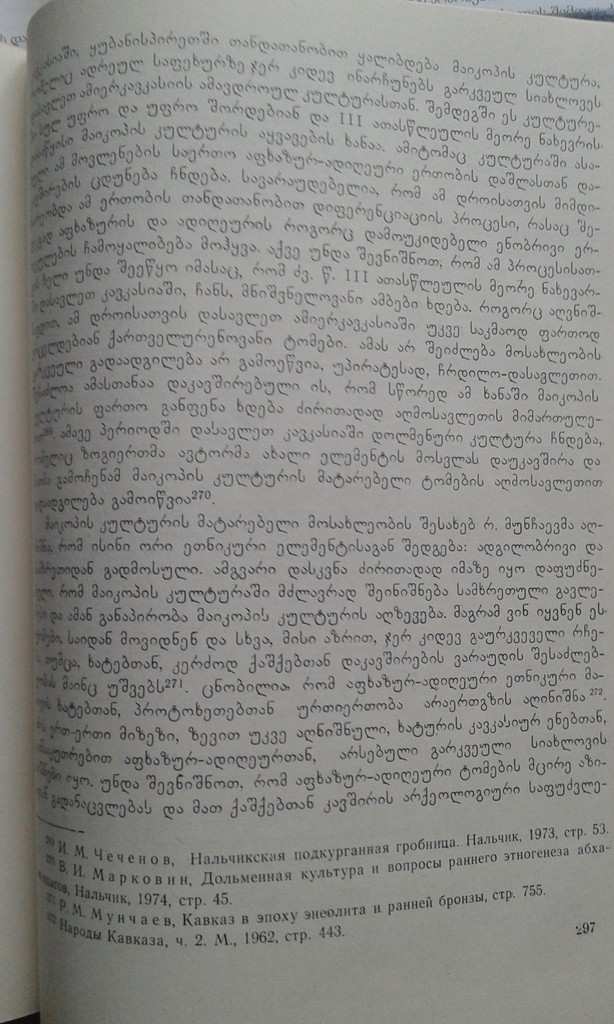 ყუბანისპირეთში თანდათანობით ყალიბდება მაიკოპის კულტურა,
ადრეულ საფეხურზე ჯერ კიდევ ინარჩუნებს გარკვეულ სიახლოვეს
ამიერკავკასიის ამავდროულ კულტურასთან. შემდეგში ეს კულტურე-
უფრო და უფრო შორდებიან და III ათასწლეულის მეორე ნახევრის
მაიკოპის კულტურის აყვავების ხანაა. ამიტომაც კულტურაში ასა-
ამ მოვლენების საერთო აფხაზურ-ადიღეური ერთობის დაშლასთან და-
ცდუნება ჩნდება. სავარაუდებელია, რომ ამ დროისათვის მიმდი-
ამ ერთობის თანდათანობით დიფერენციაციის პროცესი, რასაც შე-
აფხაზურის და ადიღეურის როგორც დამოუკიდებელი ენობრივი ერ-
ჩამოყალიბება მოჰყვა. აქვე უნდა შევნიშნოთ, რომ ამ პროცესისათ-
ხელი უნდა შეეწყო იმასაც, რომ ძვ. წ. III ათასწლეულის მეორე ნახევარ-
დასავლეთ კავკასიაში, ჩანს, მნიშვნელოვანი ამბები ხდება. როგორც აღვნიშ-
ამ დროისათვის დასავლეთ ამიერკავკასიაში უკვე საკმაოდ ფართოდ
ქართველურენოვანი ტომები. ამას არ შეიძლება მოსახლეობის
გადაადგილება არ გამოეწვია, უპირატესად, ჩრდილო-დასავლეთით.
ამასთანაა დაკავშირებული ის, რომ სწორედ ამ ხანაში მაიკოპის
ფართო განფენა ხდება ძირითადად აღმოსავლეთის მიმართულე-
ამავე პერიოდში დასავლეთ კავკასიაში დოლმენური კულტურა ჩნდება,
ზოგიერთმა ავტორმა ახალი ელემენტის მოსვლას დაუკავშირა და
გამოჩენამ მაიკოპის კულტურის მატარებელი ტომების აღმოსავლეთით
გამოიწვია²⁷⁰.
მაიკოპის კულტურის მატარებელი მოსახლეობის შესახებ რ. მუნჩაევმა აღ-
რომ ისინი ორი ეთნიკური ელემენტისაგან შედგება: ადგილობრივი და
გადმოსული. ამგვარი დასკვნა ძირითადად იმაზე იყო დაფუძნე-
რომ მაიკოპის კულტურაში მძლავრად შეინიშნება სამხრეთული გავლე-
და ამან განაპირობა მაიკოპის კულტურის აღზევება. მაგრამ ვინ იყვნენ ეს
საიდან მოვიდნენ და სხვა, მისი აზრით, ჯერ კიდევ გაურკვეველი რჩე-
ხატებთან, კერძოდ ქაშქებთან დაკავშირების ვარაუდის შესაძლებ-
მაინც უშვებს²⁷¹. ცნობილია რომ აფხაზურ-ადიღეური ეთნიკური მა-
ხატებთან, პროტოხეთებთან ურთიერთობა არაერთგზის აღინიშნა²⁷².
ერთ-ერთი მიზეზი, ზევით უკვე აღნიშნული, ხატურის კავკასიურ ენებთან,
აფხაზურ-ადიღეურთან, არსებული გარკვეული სიახლოვის
იყო. უნდა შევნიშნოთ, რომ აფხაზურ-ადიღეური ტომების მცირე აზი-
გადანაცვლებას და მათ ქაშქებთან კავშირის არქეოლოგიური საფუძვლე-
И. М. Чеченов, Нальчикская подкурганная гробница. Нальчик, 1973, стр. 53.
В. И. Марковин, Дольменная культура и вопросы раннего этногенеза абха-
Нальчик, 1974, стр. 45.
Р. М. Мунчаев, Кавказ в эпоху энеолита и ранней бронзы, стр. 755.
Народы Кавказа, ч. 2. М., 1962, стр. 443.
297